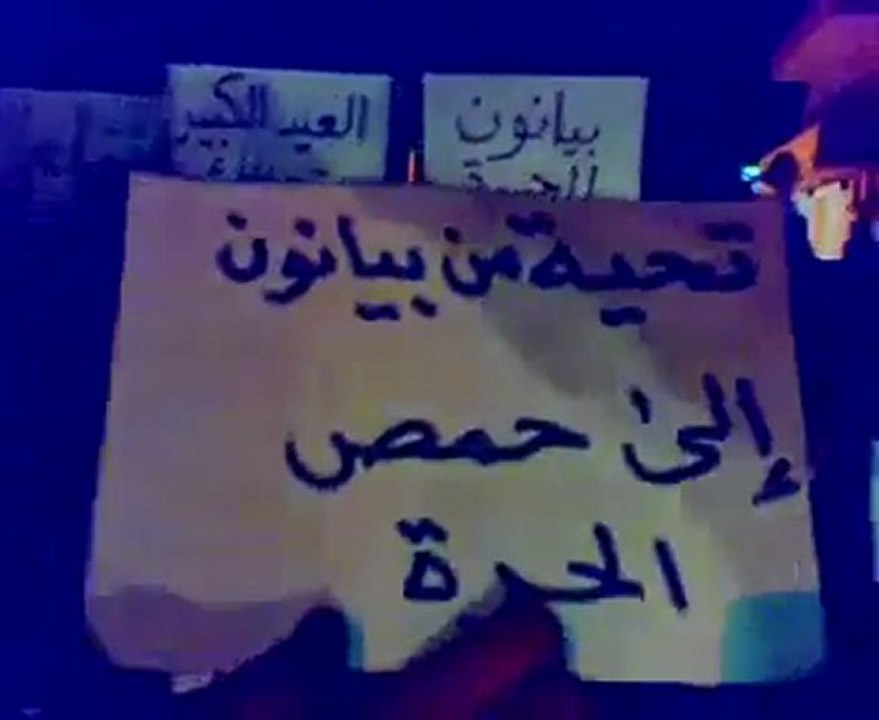 العيد الكبير
بيانون
تحية من بيانون
إلى حمص
الحرة